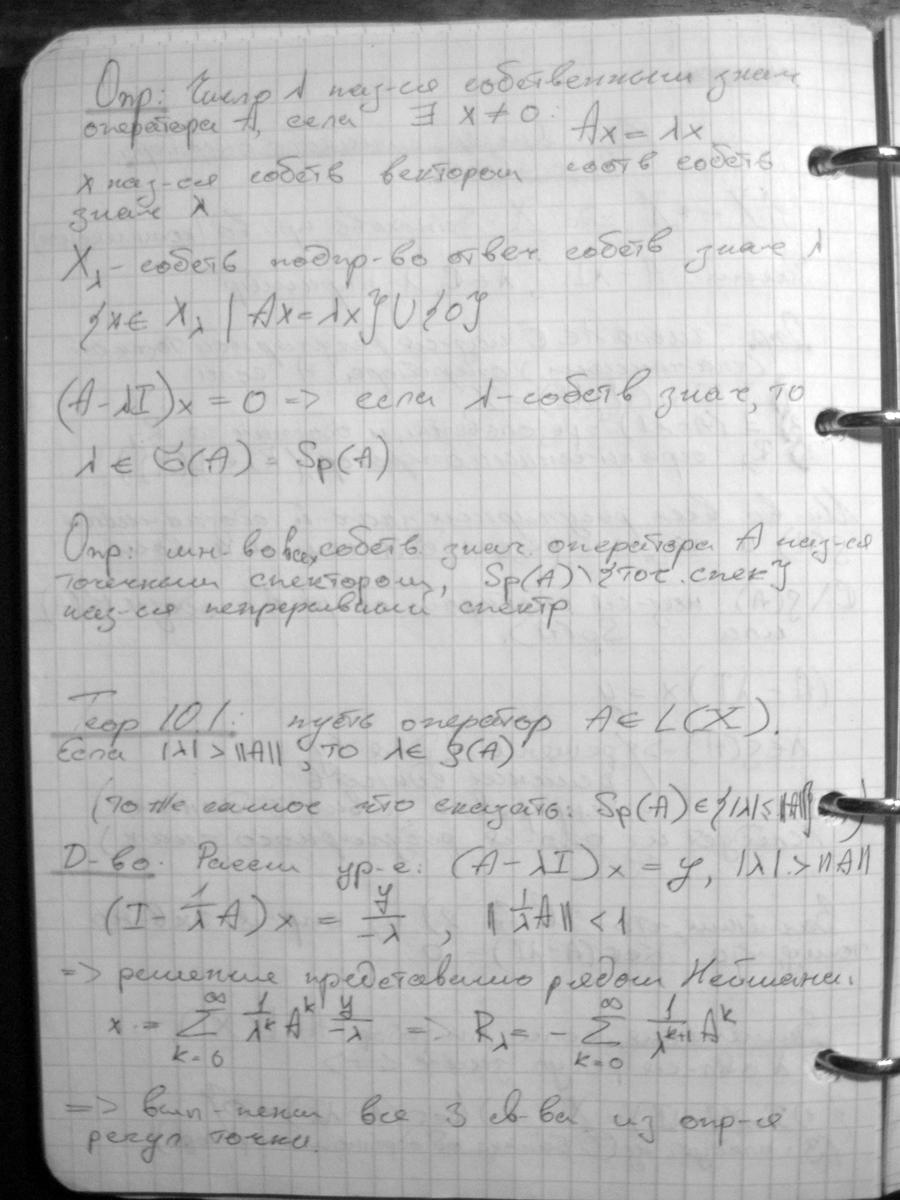 Опр: Число λ наз-ся собственным знач
оператора A, если ∃ x ≠ 0: Ax = λx
x наз-ся собств вектором соотв собств
знач λ
X_λ - собств подпр-во отвеч собств знач λ
{x ∈ X_λ | Ax = λx} ∪ {0}
(A-λI)x = 0 => если λ-собств знач, то
λ ∈ σ(A) = Sp(A)
Опр: мн-во всех собств. знач. оператора A наз-ся
точечным спектором, Sp(A)\{точ. спек}
наз-ся непрерывный спектр
Теор 10.1: пусть оператор A ∈ L(X).
Если |λ| > ||A||, то λ ∈ ρ(A)
(то же самое что сказать: Sp(A) ∈ {|λ| ≤ ||A||})
D-во. Рассм ур-е: (A-λI)x = y, |λ| > ||A||
(I - 1/λ A)x = y/-λ , ||1/λ A|| < 1
=> решение представимо рядом Неймана.
x = ∑_{k=0}^{∞} 1/λ^k A^k y/-λ => R_λ = - ∑_{k=0}^{∞} 1/λ^{k+1} A^k
=> вып-нены все 3 св-ва из опр-я
регул точки.